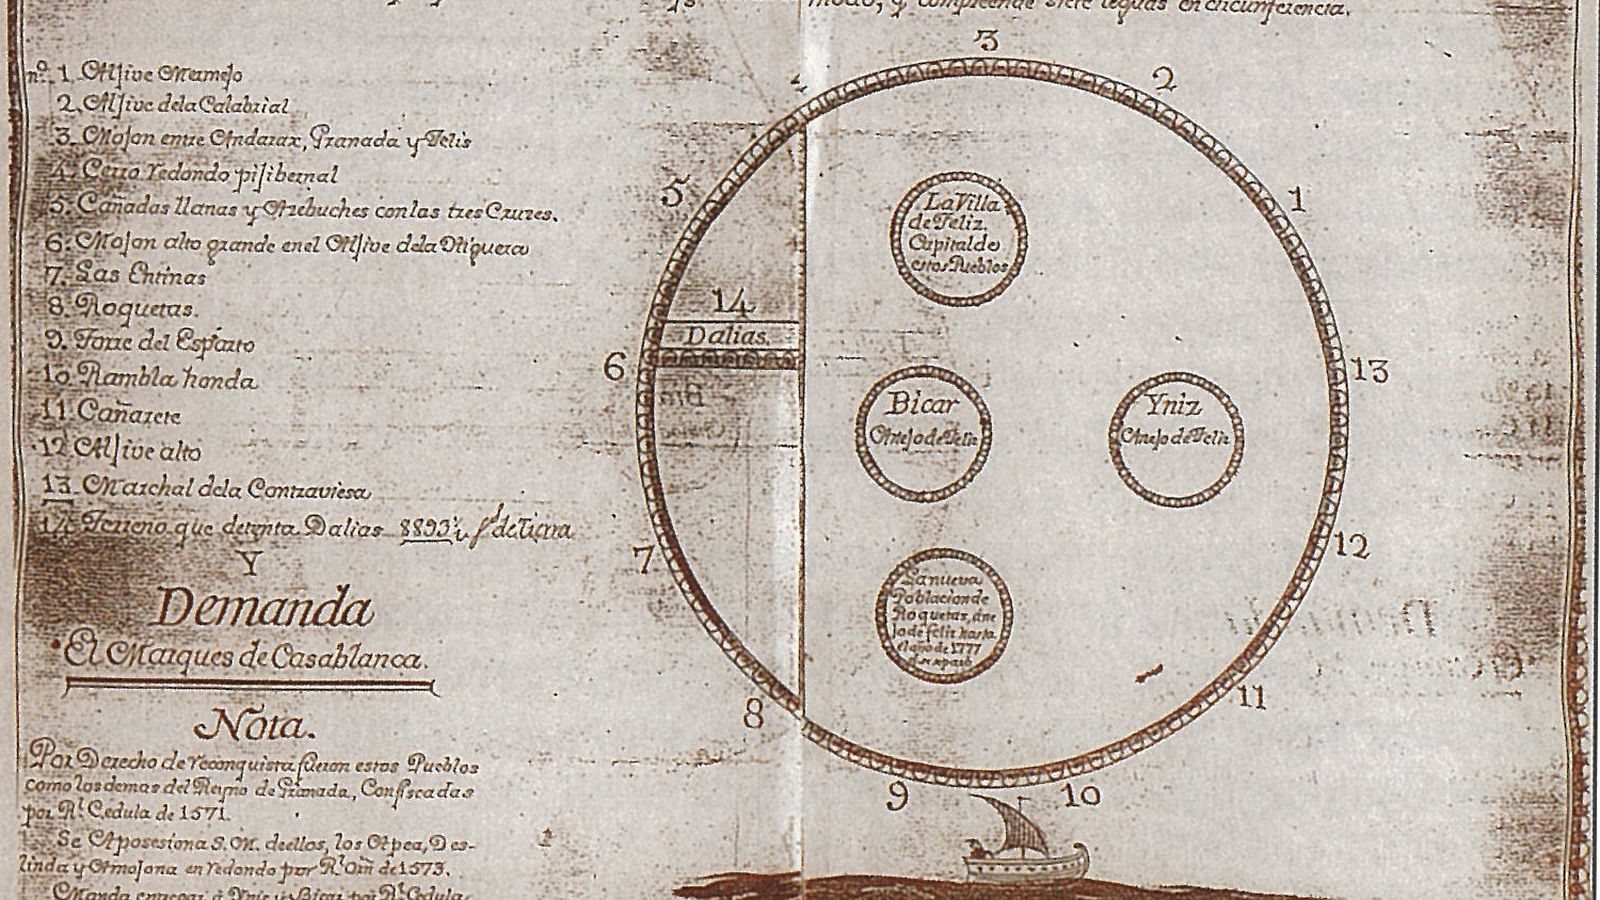 modo, q comprende siete leguas en circunferencia.
nº. 1. Aljive Mamejo
2. Aljive dela Calabrial
3. Mojon entre Andarax, Granada y Felis
4. Cerro redondo
5. Cañadas llanas y Azebuches con las tres Cruzes.
6. Mojon alto grande en el Aljive dela Higuera
7. Las Entinas
8. Roquetas.
9. Torre del Esparto
10 Rambla honda
11 Cañarete
12 Aljive alto
13. Marchal dela Contraviesa
14 Terreno que detenta Dalias 8893 de Tierra
Y
Demanda
El Marques de Casablanca.
Nota.
Por Derecho de reconquista fueron estos Pueblos
como los demas del Reyno de Granada, Confiscadas
por Rl. Cedula de 1571.
Se Aposesiona S. M. de ellos, los Apea, Des-
linda y Amojona en redondo por Rl. de 1573.
Manda Yniz y Bicar por Rl. Cedula
3
2
1
13
12
11
10
9
8
7
6
5
4
14
Dalias.
La Villa
de Feliz.
Capital de
estos Pueblos
Bicar
Anejo de Feliz
Yniz
Anejo de Feliz
La nueva
Poblacion de
Roquetas, ane
jo de feliz hasta
el año de 1777